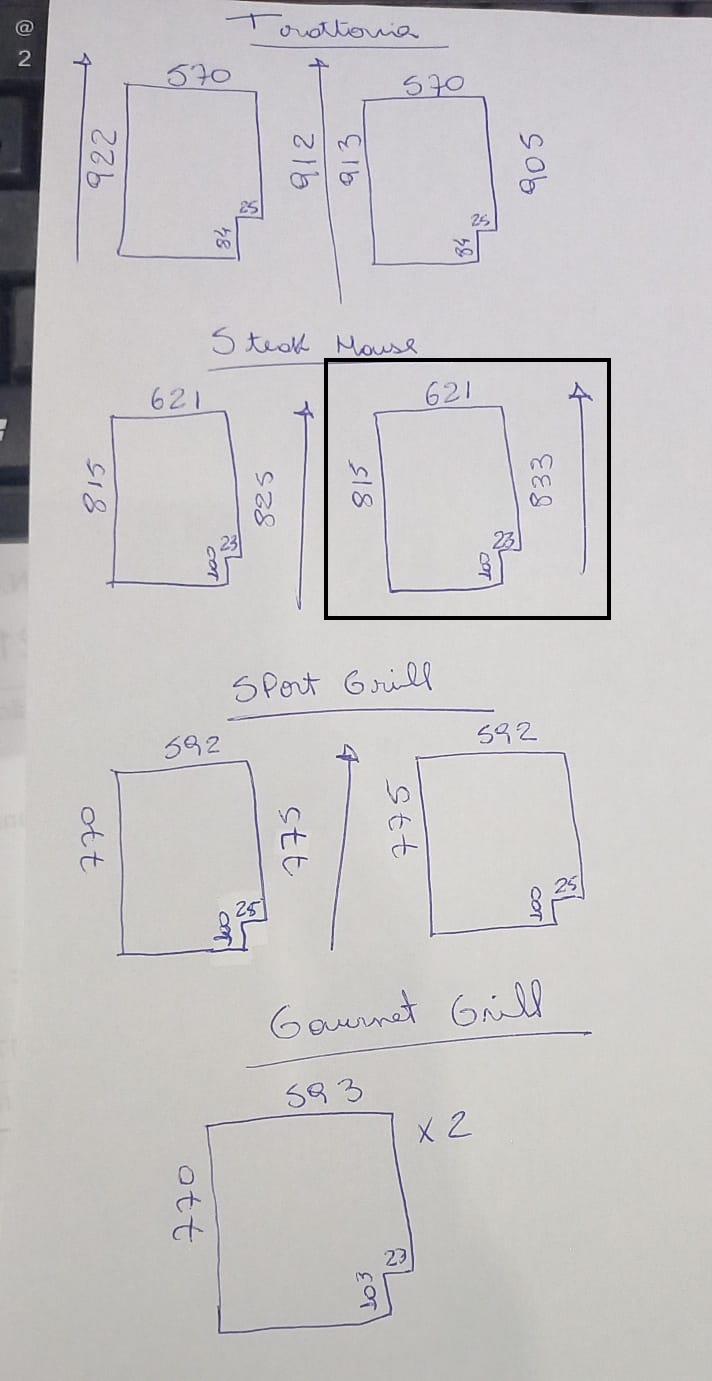 @
2
Torattoria
570
922
25
84
912
570
913
905
25
84
Steak House
621
815
825
23
100
621
815
833
23
100
Sport Grill
592
770
775
25
100
592
775
25
100
Gourmet Grill
593
x 2
770
23
103